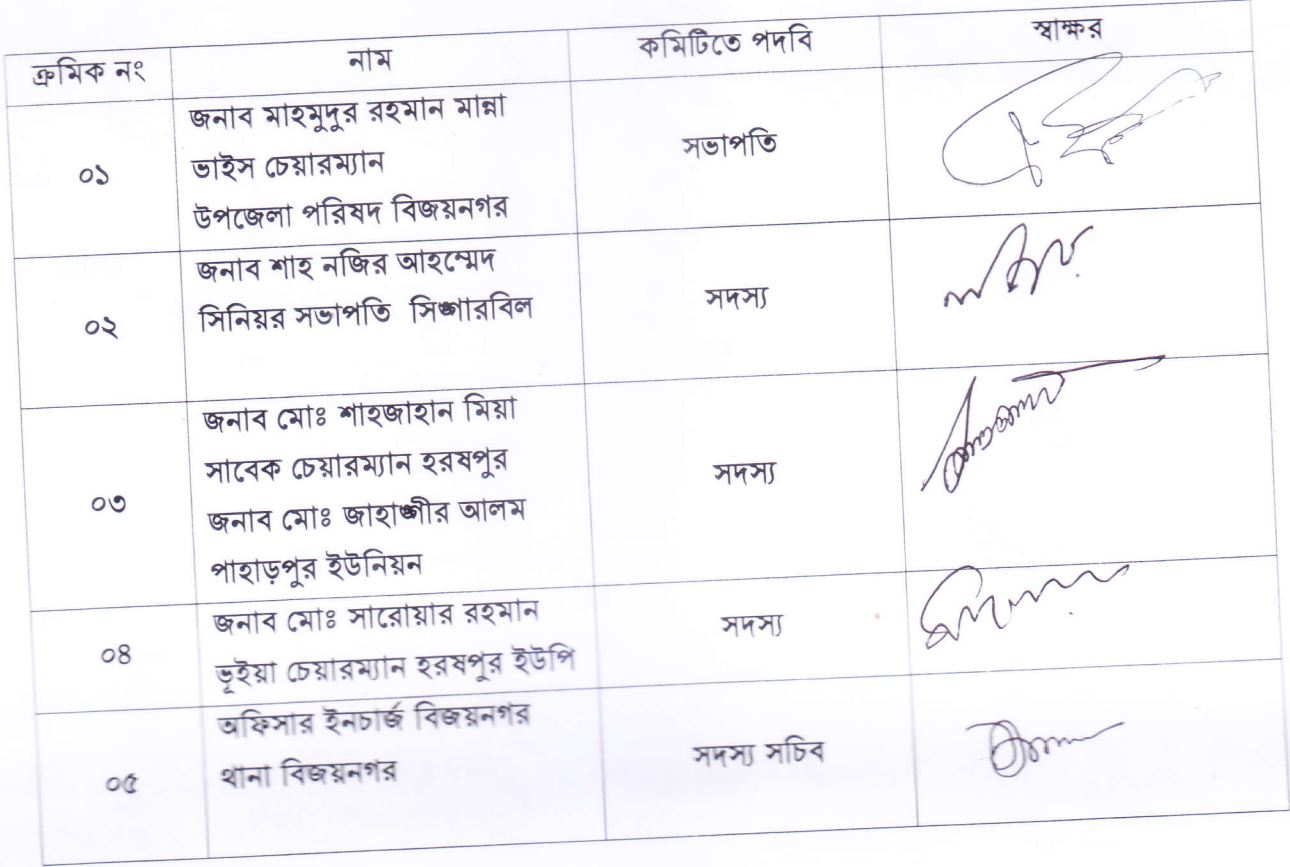 ক্রমিক নং নাম কমিটিতে পদবি স্বাক্ষর
জনাব মাহমুদুর রহমান মান্না
০১ ভাইস চেয়ারম্যান সভাপতি
উপজেলা পরিষদ বিজয়নগর
জনাব শাহ নজির আহম্মেদ
০২ সিনিয়র সভাপতি সিঙ্গারবিল সদস্য
জনাব মোঃ শাহজাহান মিয়া
সাবেক চেয়ারম্যান হরষপুর
০৩ জনাব মোঃ জাহাঙ্গীর আলম সদস্য
পাহাড়পুর ইউনিয়ন
জনাব মোঃ সারোয়ার রহমান
০৪ ভূইয়া চেয়ারম্যান হরষপুর ইউপি সদস্য
অফিসার ইনচার্জ বিজয়নগর
০৫ থানা বিজয়নগর সদস্য সচিব